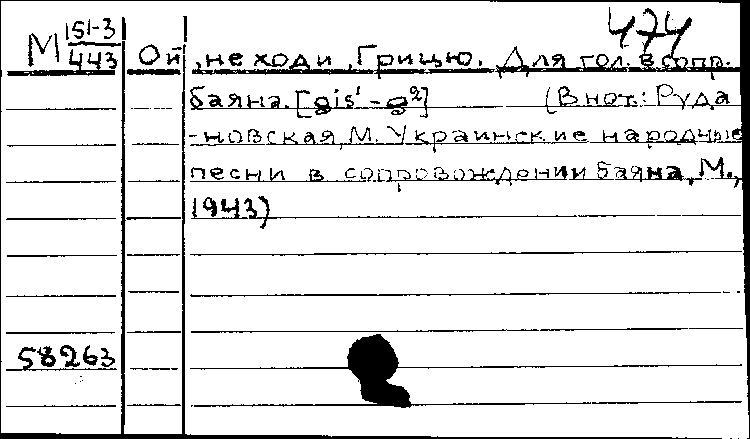 474
М 151-3
443
Ой, не ходи, Грицю. Для гол. в сопр.
баяна. [gis¹ - g²] (В нот.: Руда
-новская, М. Украинские народные
песни в сопровождении баяна, М.,
1943)
58263